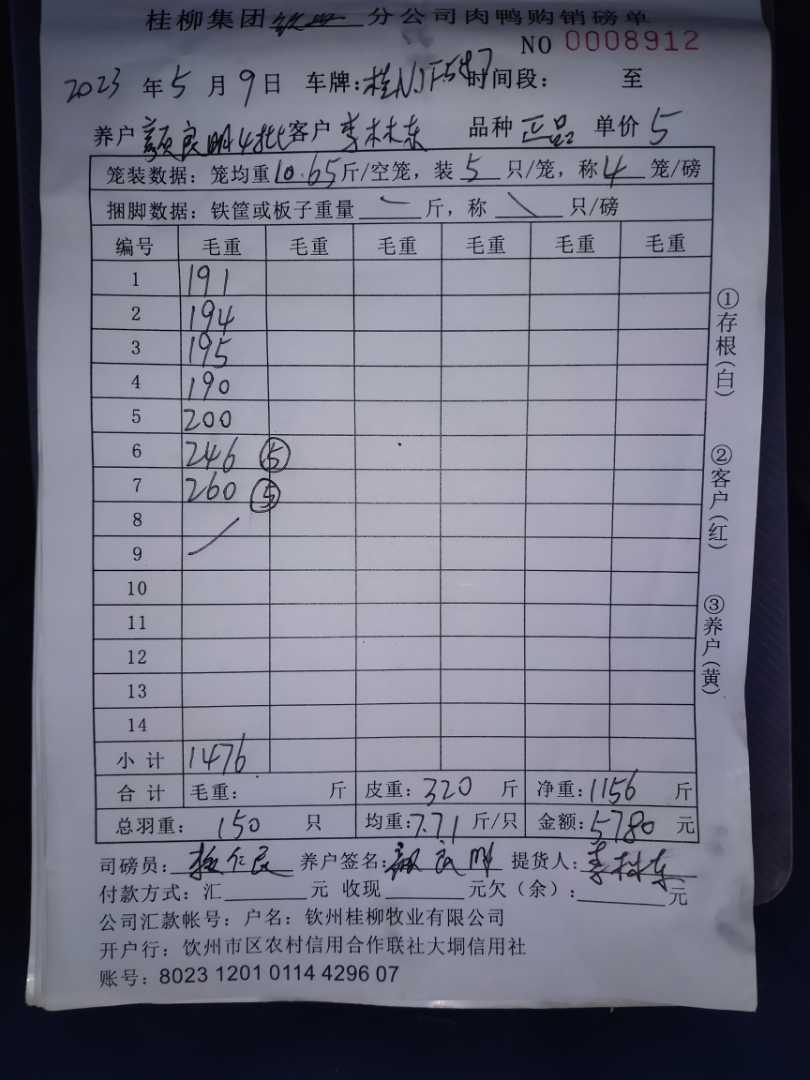 桂柳集团钦州分公司肉鸭购销磅单
NO 0008912
2023 年 5 月 9 日 车牌:桂NJF547 时间段: 至
养户 颜良明4批 客户 李林东 品种 正品 单价 5
笼装数据:笼均重10.65斤/空笼,装 5 只/笼,称 4 笼/磅
捆脚数据:铁筐或板子重量 斤,称 只/磅
编号 毛重 毛重 毛重 毛重 毛重 毛重
1 191
2 194
3 195
4 190
5 200
6 246 ⑤
7 260 ⑤
8
9
10
11
12
13
14
小计 1476
合计 毛重: 斤 皮重:320 斤 净重:1156 斤
总羽重: 150 只 均重:7.71 斤/只 金额:5780 元
司磅员: 仁良 养户签名:颜良明 提货人:李林东
付款方式:汇 元 收现 元欠(余): 元
公司汇款帐号:户名:钦州桂柳牧业有限公司
开户行:钦州市区农村信用合作联社大垌信用社
账号:8023 1201 0114 4296 07
①存根(白)
②客户(红)
③养户(黄)